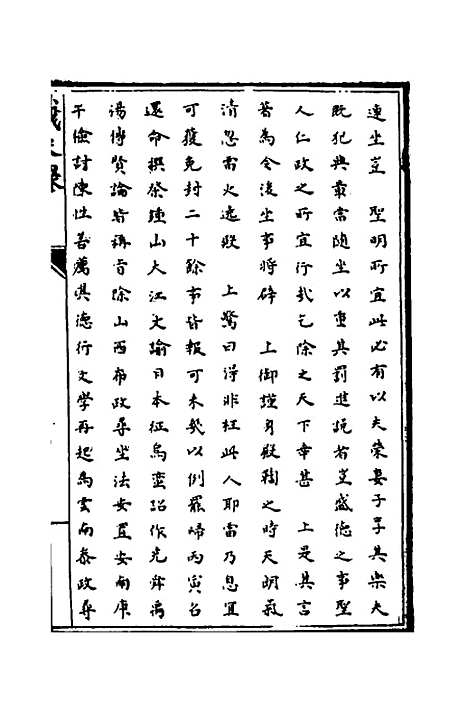 連坐豈　聖明所宜此必有以夫榮妻子享其樂夫
既犯典章當随坐以重其罰進説者豈盛德之事聖
人仁政之所宜行哉乞除之天下幸甚　上是其言
著為令後坐事將辟　上御謹身殿鞫之時天明氣
清忽雷火遶殿　上驚曰得非枉此人耶雷乃息宜
可獲免封二十餘事皆報可未幾以例罷歸丙寅召
還命撰祭鍾山大江文諭日本征烏蠻詔作堯舜禹
湯傅賢論皆稱旨除山西布政尋坐法安置安南康
千儉討陳性善薦其德行文學再起為雲南泰政尋